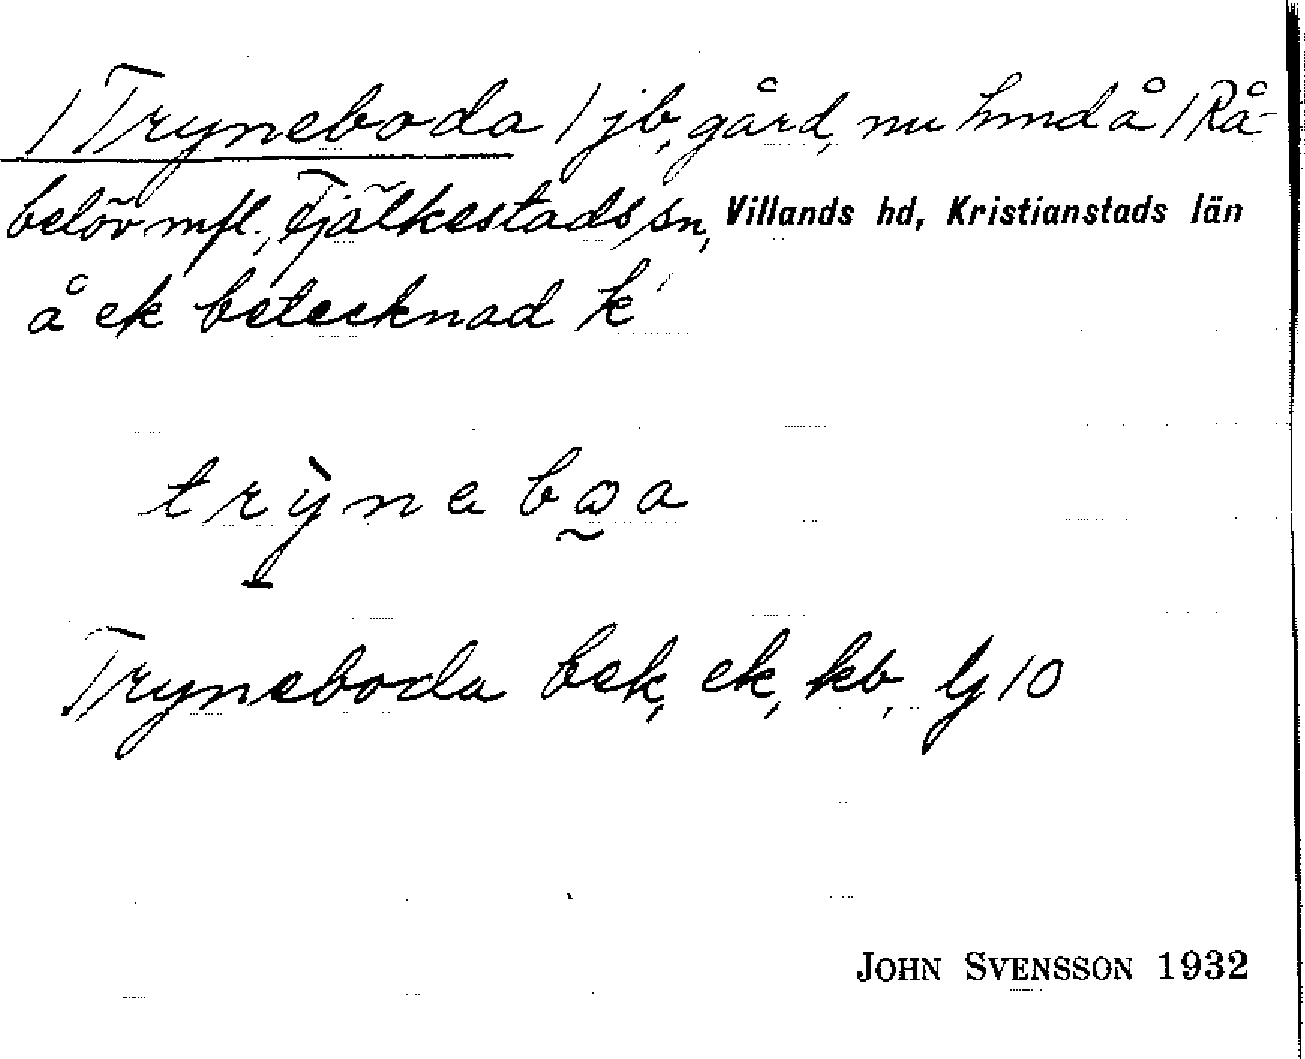 / Tryneboda / jb, gård, nu hmd å / Rå-
belöv mfl., Fjälkestads sn, Villands hd, Kristianstads län
å ek betecknad k
trỳnebωa
Tryneboda bek, ek, kb, lj 10
JOHN SVENSSON 1932